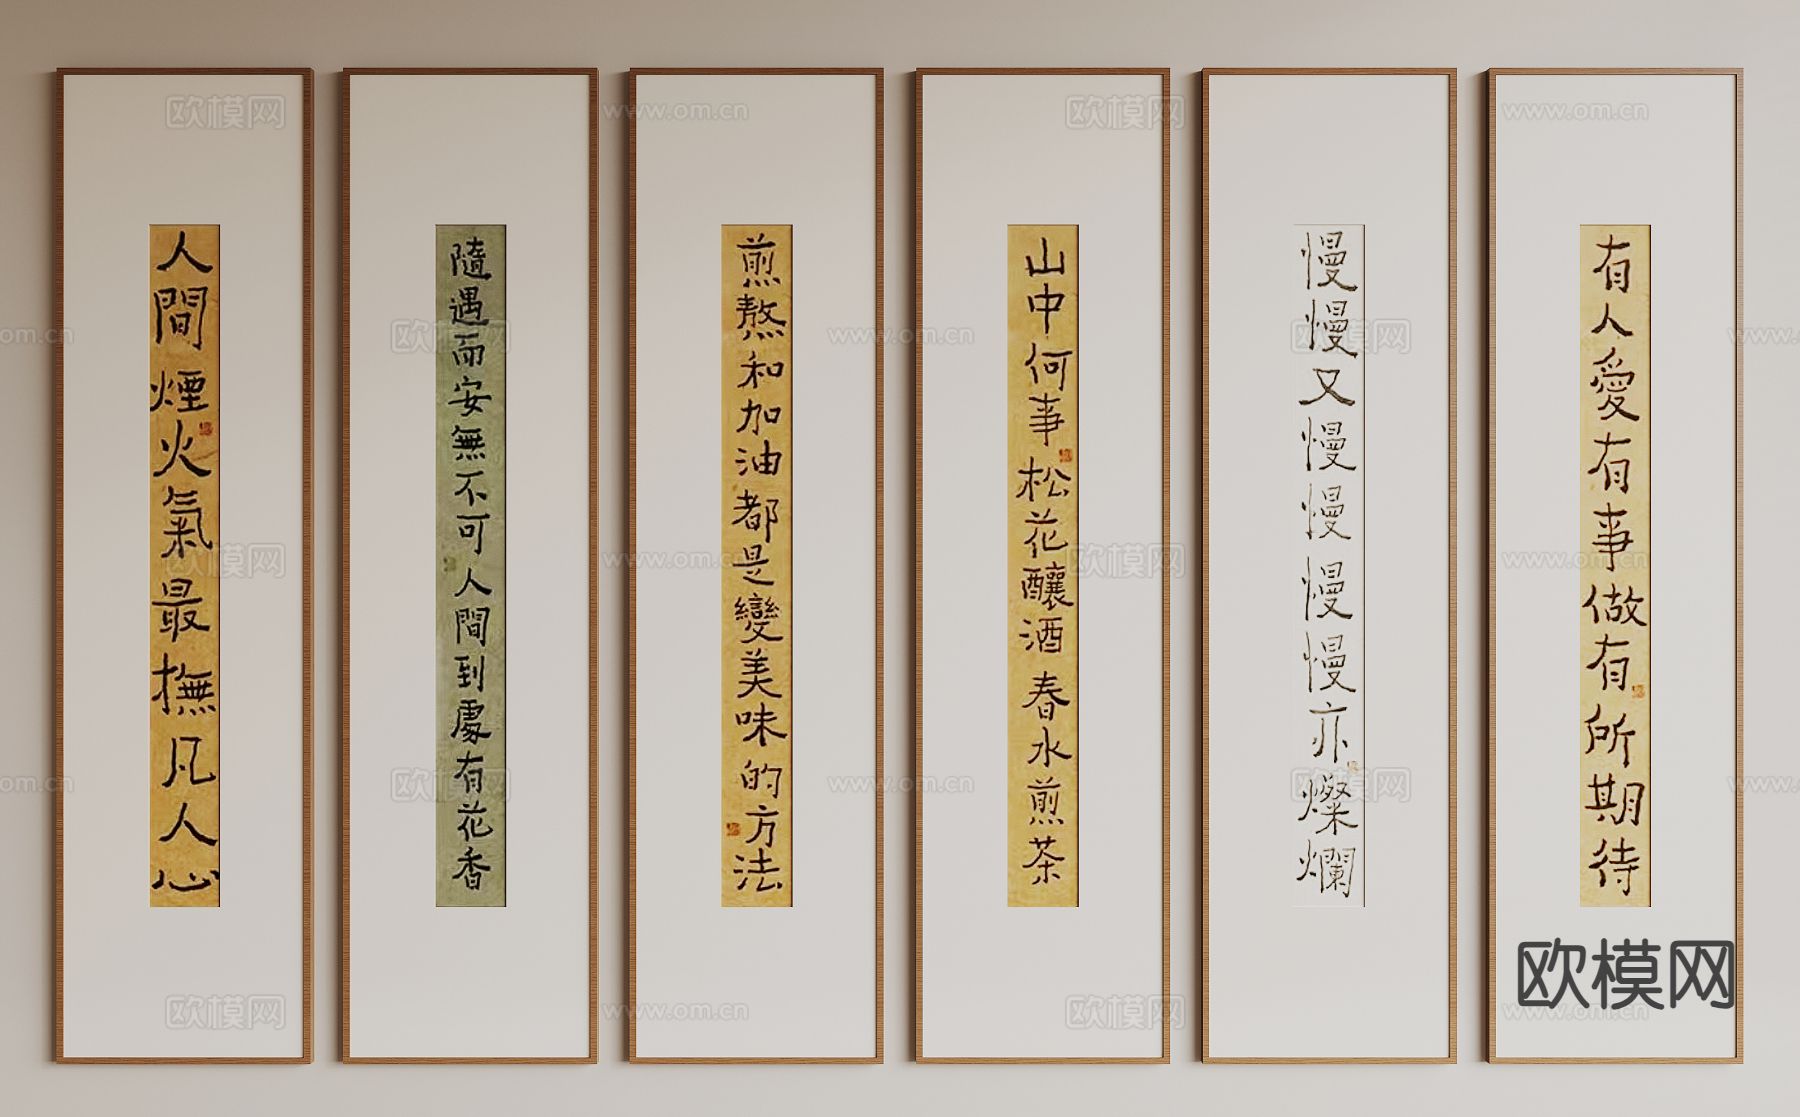 人間煙火氣最撫凡人心
隨遇而安無不可人間到處有花香
煎熬和加油都是變美味的方法
山中何事松花釀酒春水煎茶
慢慢又慢慢慢慢亦燦爛
有人愛有事做有所期待
欧模网
www.om.cn